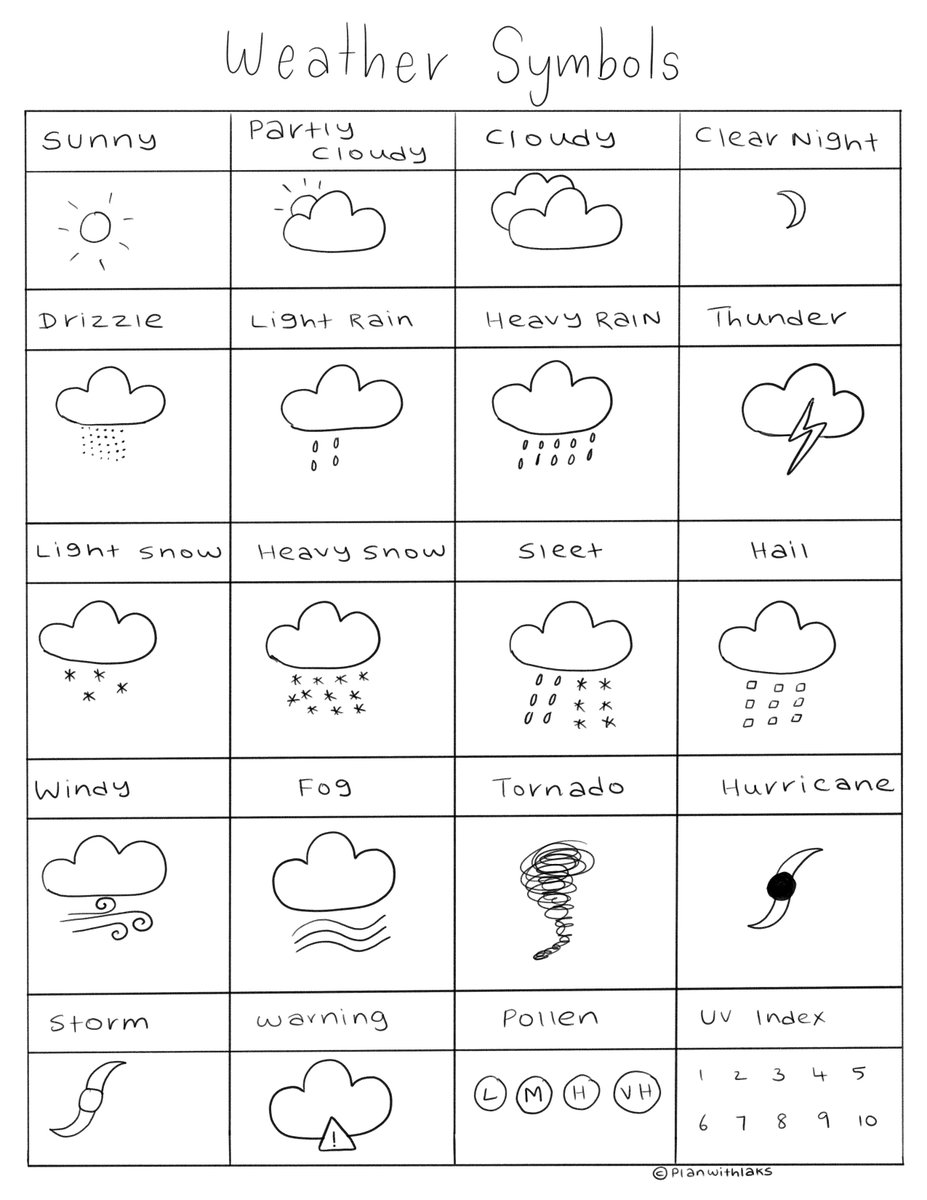 Weather Symbols
Sunny
Partly
Cloudy
Cloudy
Clear Night
Drizzle
Light Rain
Heavy Rain
Thunder
Light Snow
Heavy Snow
Sleet
Hail
Windy
Fog
Tornado
Hurricane
Storm
Warning
Pollen
UV Index
!
L M H VH
1 2 3 4 5
6 7 8 9 10
©Planwithlaks